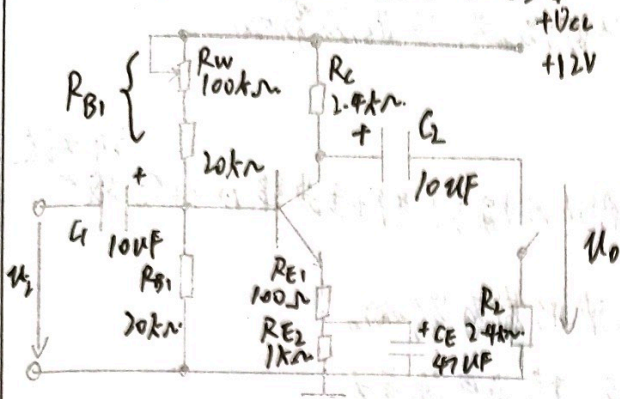 +Vcc
+12V
RB1
RW
100kΩ
20kΩ
RC
2.4kΩ
+
C2
10uF
+
C1
10uF
ui
RB1
20kΩ
RE1
100Ω
RE2
1kΩ
+ CE
47uF
RL
2.4kΩ
uo